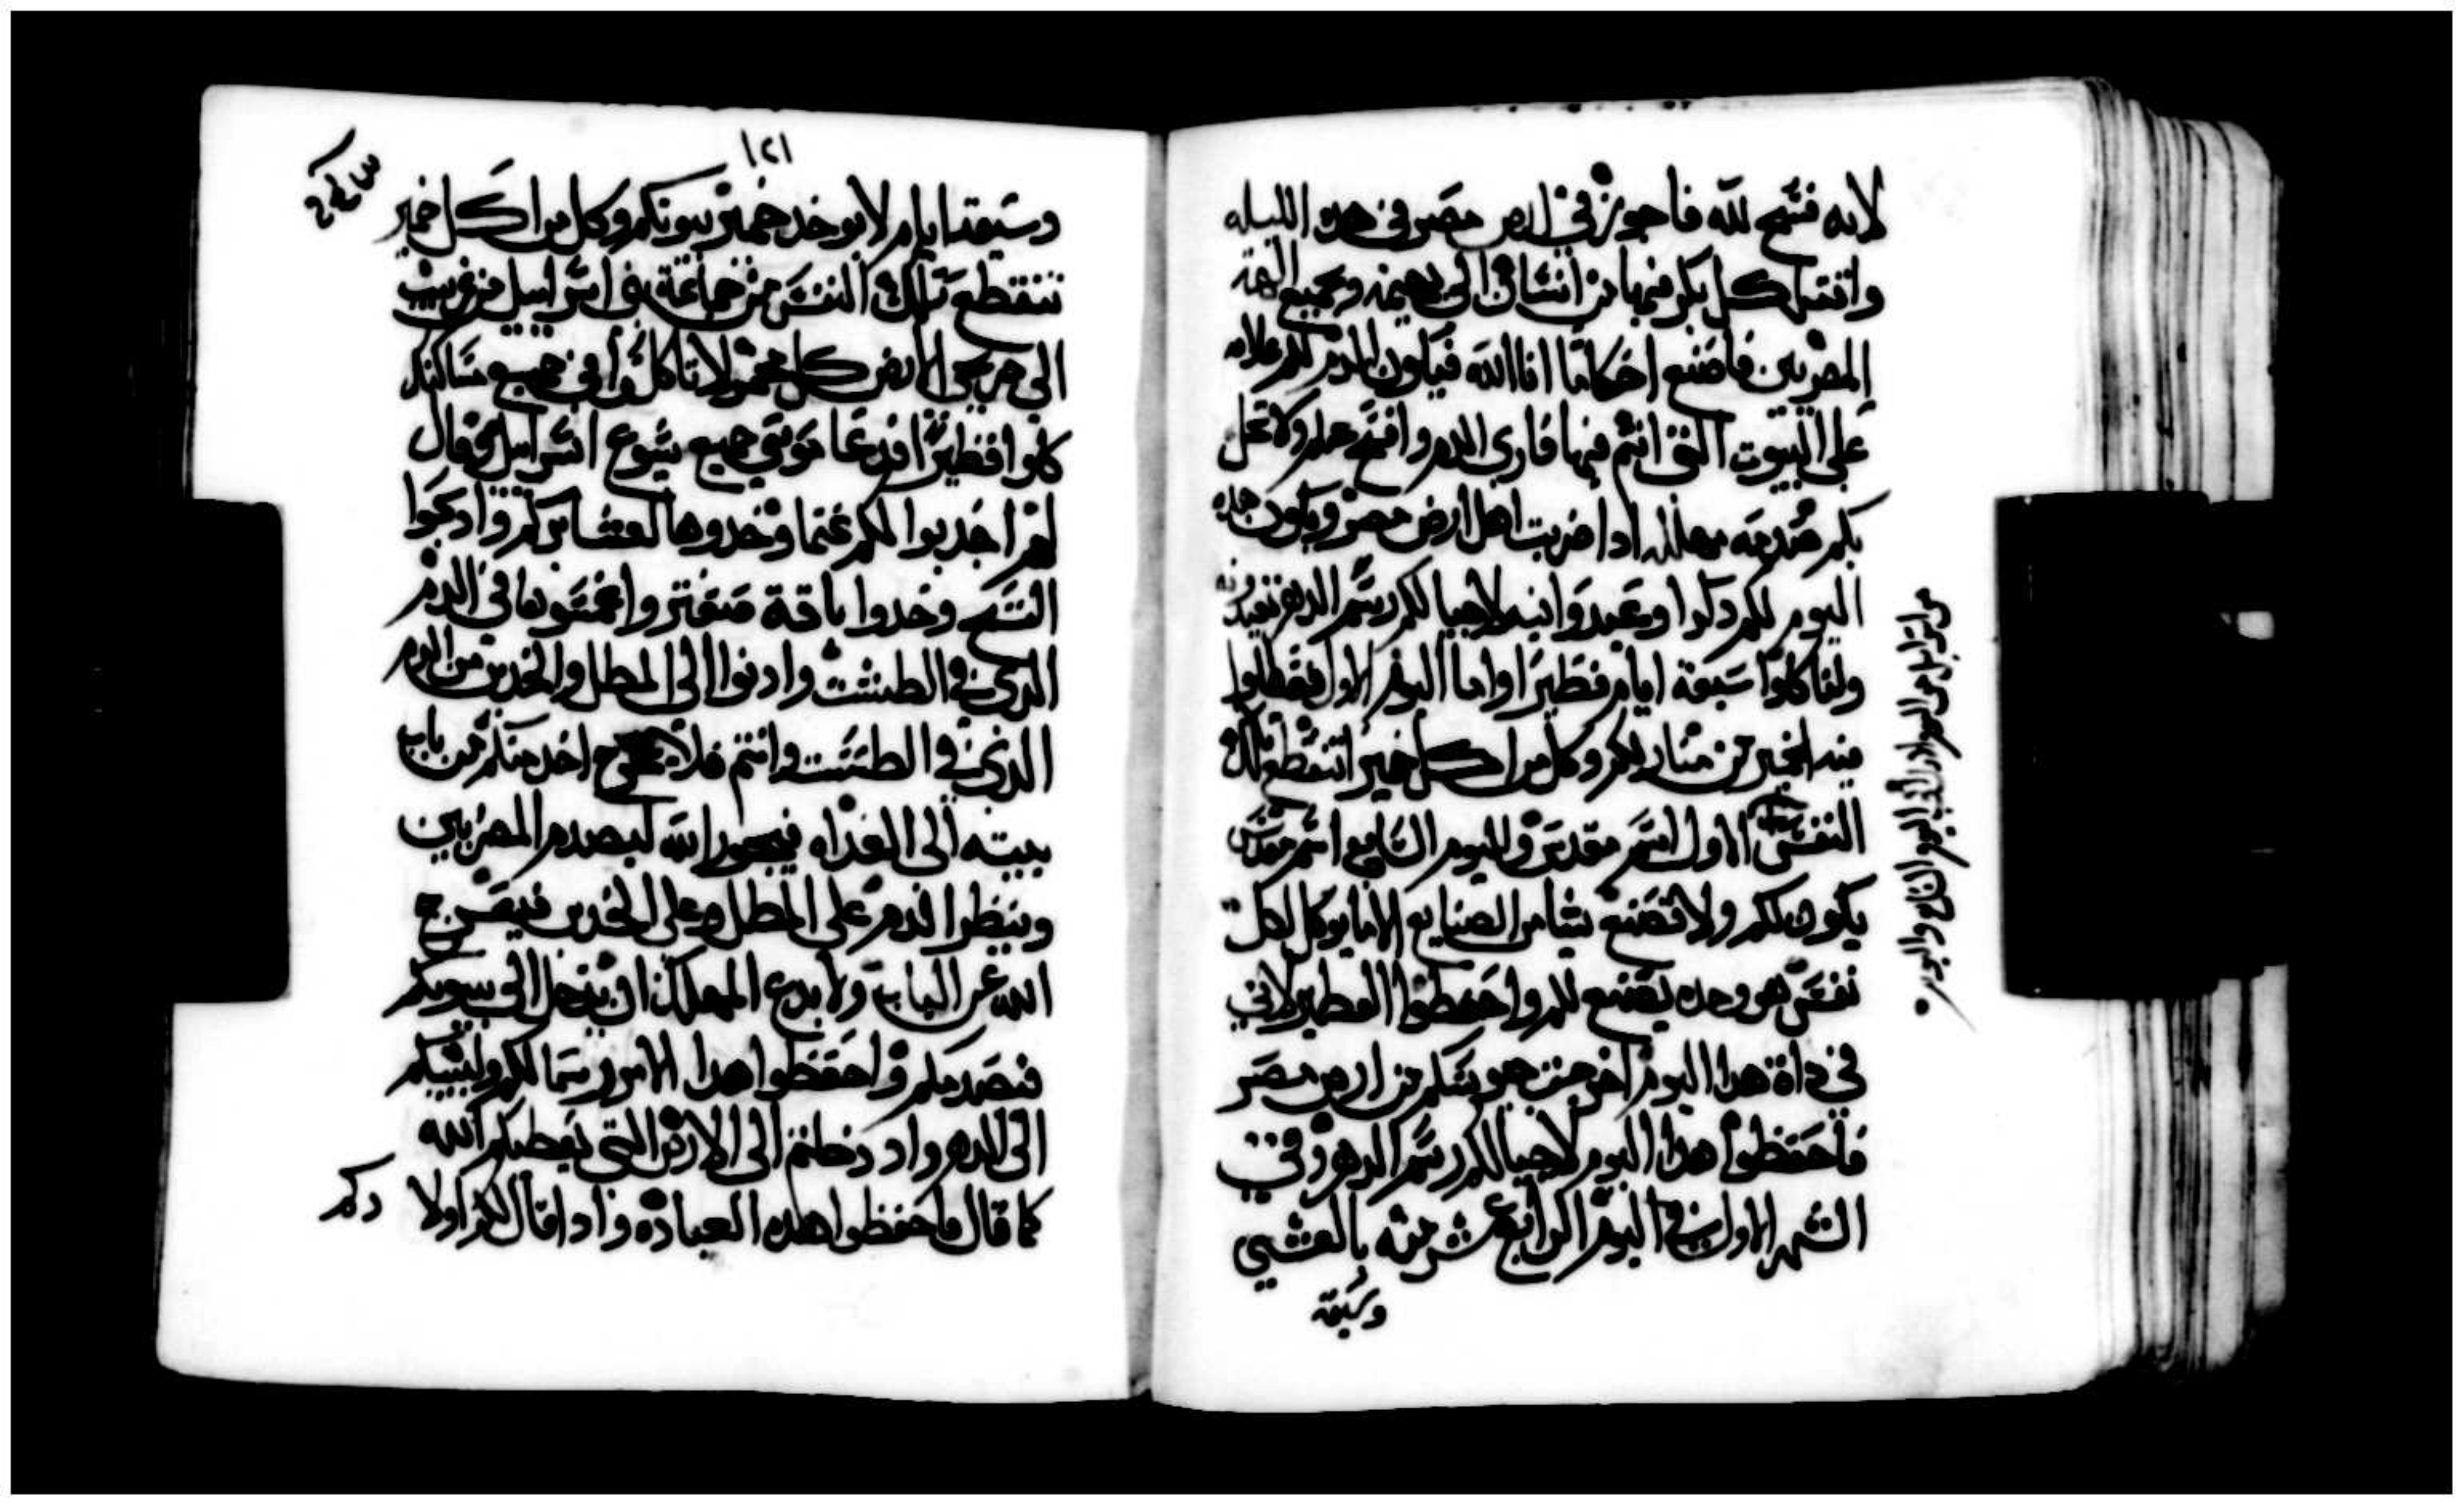 لانه فسح لله فاجوز في ارض مصر في هده الليله
واقتل كل بكر فيها من انسان الى بهيمه وجميع الهة
المصريين فاصنع احكاما انا الله فيكون الدم لكم علامه
على البيوت التي انتم فيها فارى الدم وافسح عليكم ولا تحل
بكم صدمه مهلكه ادا ضربت اهل ارض مصر ويكون هده
اليوم لكم دكرا وعيدوا فيه لاجيالكم رسم الدهر تعيدونه
ولتاكلوا سبعة ايام فطيرا واما اليوم الاول فعطلوا
فيه الخمير من منازلكم وكل من اكل خمير اتنقطع تلك
النفس الاول اسم مقدس واليوم السابع اسم مقدس
يكون لكم ولا تصنع شيا من الصنايع الا ما يوكل لكل
نفس هو وحده يصنع لكم واحفظوا الفطير لاني
في داة هدا اليوم اخرجت جيوشكم من ارض مصر
فاحفظوا هدا اليوم لاجيالكم رسم الدهر وفي
الشهر الاول في اليوم الرابع عشر منه بالعشي
وسبعة
من اسرايل من اليوم الاول الى اليوم السابع واليوم
١٢١
وسبعة ايام لا يوخد خمير بيوتكم وكل من اكل خمير
تنقطع تلك النفس من جماعة بني اسرايل من غريب
الى صريحي الارض كل مخمر لا تاكلوا في جميع مساكنكم
كلوا فطيرا فدعا موسى جميع شيوع اسرايل وقال
لهم اجدبوا لكم غنما وخدوها لعشايركم وادبحوا
الفسح وخدوا باقة صعتر واغمسوها في الدم
الدي في الطشت وادنوا الى المطل والخدين من الدم
الدي في الطشت وانتم فلا يخرج احد منكم من باب
بيته الى الغداه فيجوز الله ليصدم المصريين
وينظر الدم على المطل وعلى الخدين فيفسح
الله عن الباب ولا يدع المهلك ان يدخل الى بيوتكم
فيصدمكم واحفظوا هدا الامر رسما لكم ولبنيكم
الى الدهر واد دخلتم الى الارض التي يعطيكم الله
كما قال فاحفظوا هده العباده وادا قال لكم اولا
دكم